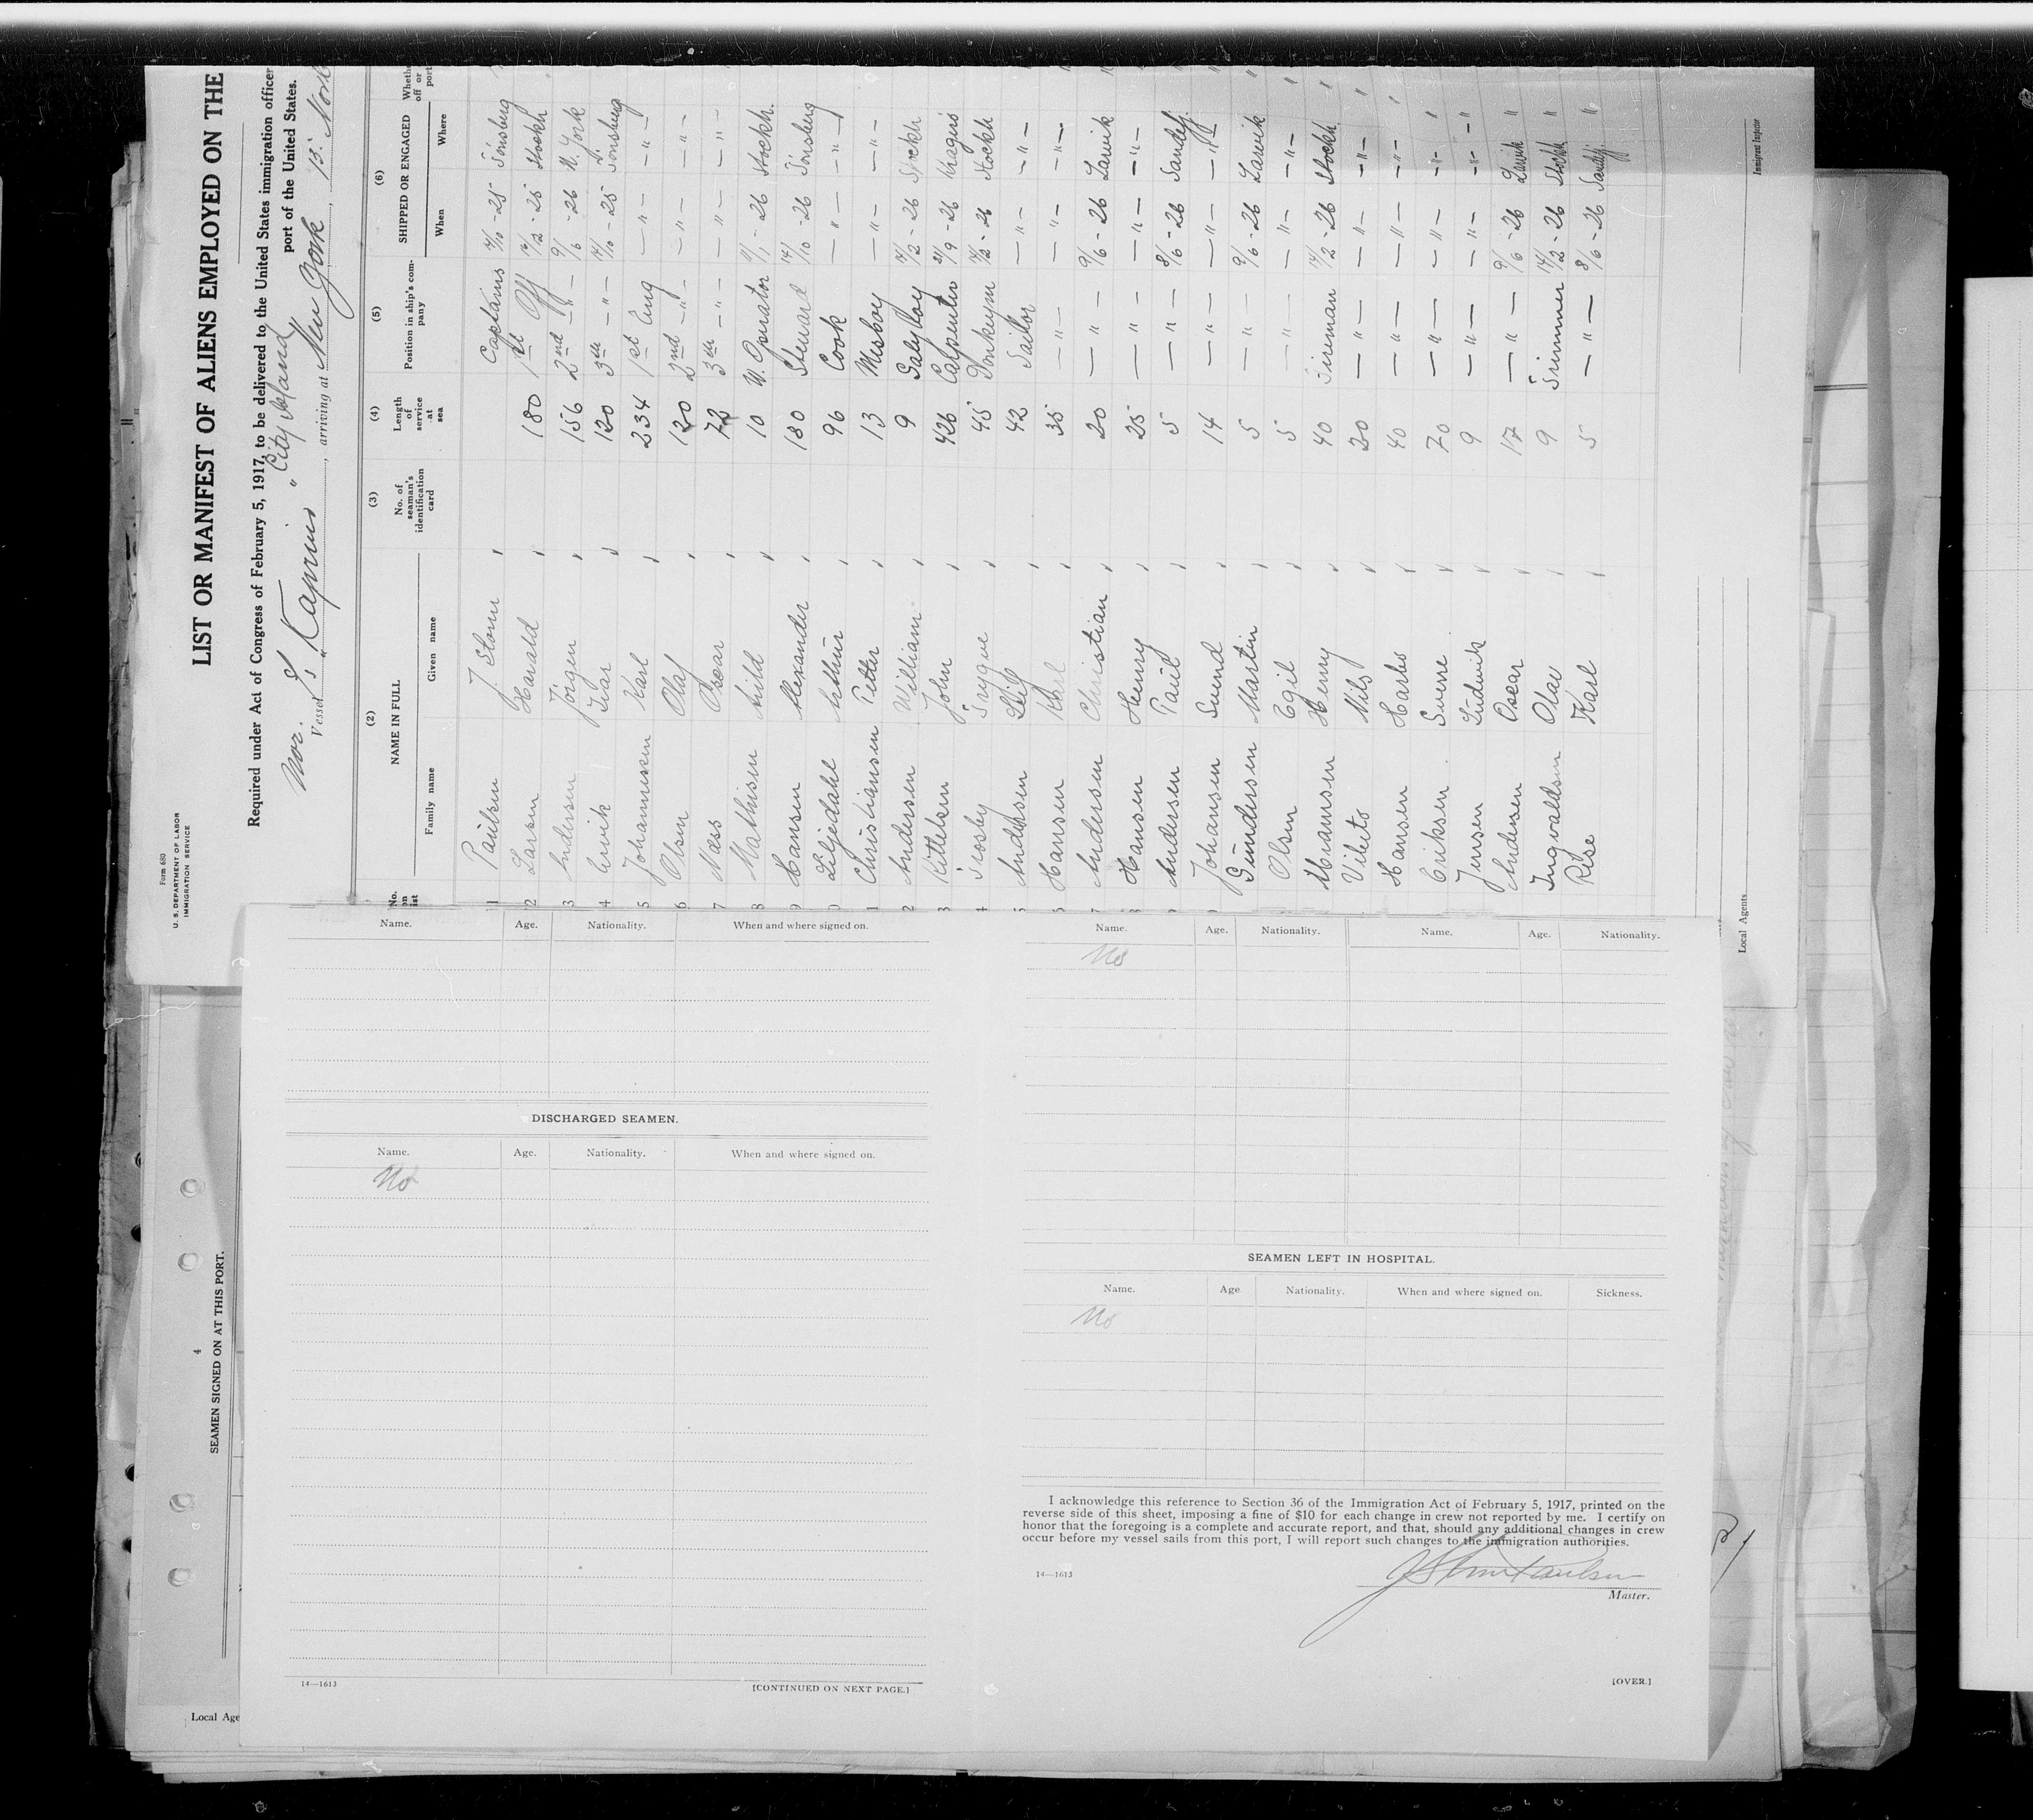 Form 680
U. S. DEPARTMENT OF LABOR
IMMIGRATION SERVICE
LIST OR MANIFEST OF ALIENS EMPLOYED ON THE
Required under Act of Congress of February 5, 1917, to be delivered to the United States immigration officer
port of the United States.
Nor. Vessel S/S "Kaprino" "City Island", arriving at New York, 13.
(2) (3) (4) (5) (6)
No. on list NAME IN FULL No. of seaman's identification card Length of service at sea Position in ship's company SHIPPED OR ENGAGED
Family name Given name When Where
1 Paulsen J. Storm Captains 14/10-25 Tönsberg
2 Larsen Harald 180 1st Off 14/2-25 Stockh
3 Andersen Jörgen 156 2nd -"- 9/6-26 N. York
4 Ervik Ivar 120 3th -"- 14/10-25 Tönsberg
5 Johannessen Karl 234 1st Eng -"- -"-
6 Olsen Olaf 120 2nd -"- -"- -"-
7 Næss Oscar 72 3th -"- -"- -"-
8 Mathisen Arild 10 W. Operator 11/1-26 Stockh.
9 Hansen Alexander 180 Steward 14/10-26 Tönsberg
0 Liljedahl Arthur 96 Cook -"- -"-
1 Christiansen Petter 13 Messboy -"- -"-
2 Andersen William 9 Galyboy 14/2-26 Stockh
3 Kittelsen John 426 Carpenter 21/9-26 Kragerö
4 Trosby Trygve 45 Donkeym 14/2-26 Stockh
5 Andersen Leif 42 Sailor -"- -"-
Hansen Karl 35 -"- -"- -"-
7 Andersen Christian 20 -"- 9/6-26 Larvik
Hansen Henry 25 -"- -"- -"-
Andersen Paul 5 -"- 8/6-26 Sandefj.
Johansen Svend 14 -"- -"- -"-
Gundersen Martin 5 -"- 9/6-26 Larvik
Olsen Egil 5 -"- -"- -"-
Henry 40 Fireman 14/2-26 Stockh.
Nils 20 -"- -"- -"-
Hansen 40 -"- -"- -"-
Eriksen Sverre 70 -"- -"- -"-
Jensen Ludvik 9 -"- -"- -"-
Andersen Oscar 17 -"- 9/6-26 Larvik
Ingvaldsen Olav 9 Trimmer 14/2-26 Stockh
Rise Karl 5 -"- 8/6-26 Sandefj.
Local Agents
Immigrant Inspector
4
SEAMEN SIGNED ON AT THIS PORT.
Local Age
Name. Age. Nationality. When and where signed on.
DISCHARGED SEAMEN.
Name. Age. Nationality. When and where signed on.
No
14—1613
[CONTINUED ON NEXT PAGE.]
Name. Age. Nationality. Name. Age. Nationality.
No
SEAMEN LEFT IN HOSPITAL.
Name. Age. Nationality. When and where signed on. Sickness.
No
I acknowledge this reference to Section 36 of the Immigration Act of February 5, 1917, printed on the
reverse side of this sheet, imposing a fine of $10 for each change in crew not reported by me. I certify on
honor that the foregoing is a complete and accurate report, and that, should any additional changes in crew
occur before my vessel sails from this port, I will report such changes to the immigration authorities.
J Storm Paulsen
14—1613
Master.
[OVER.]